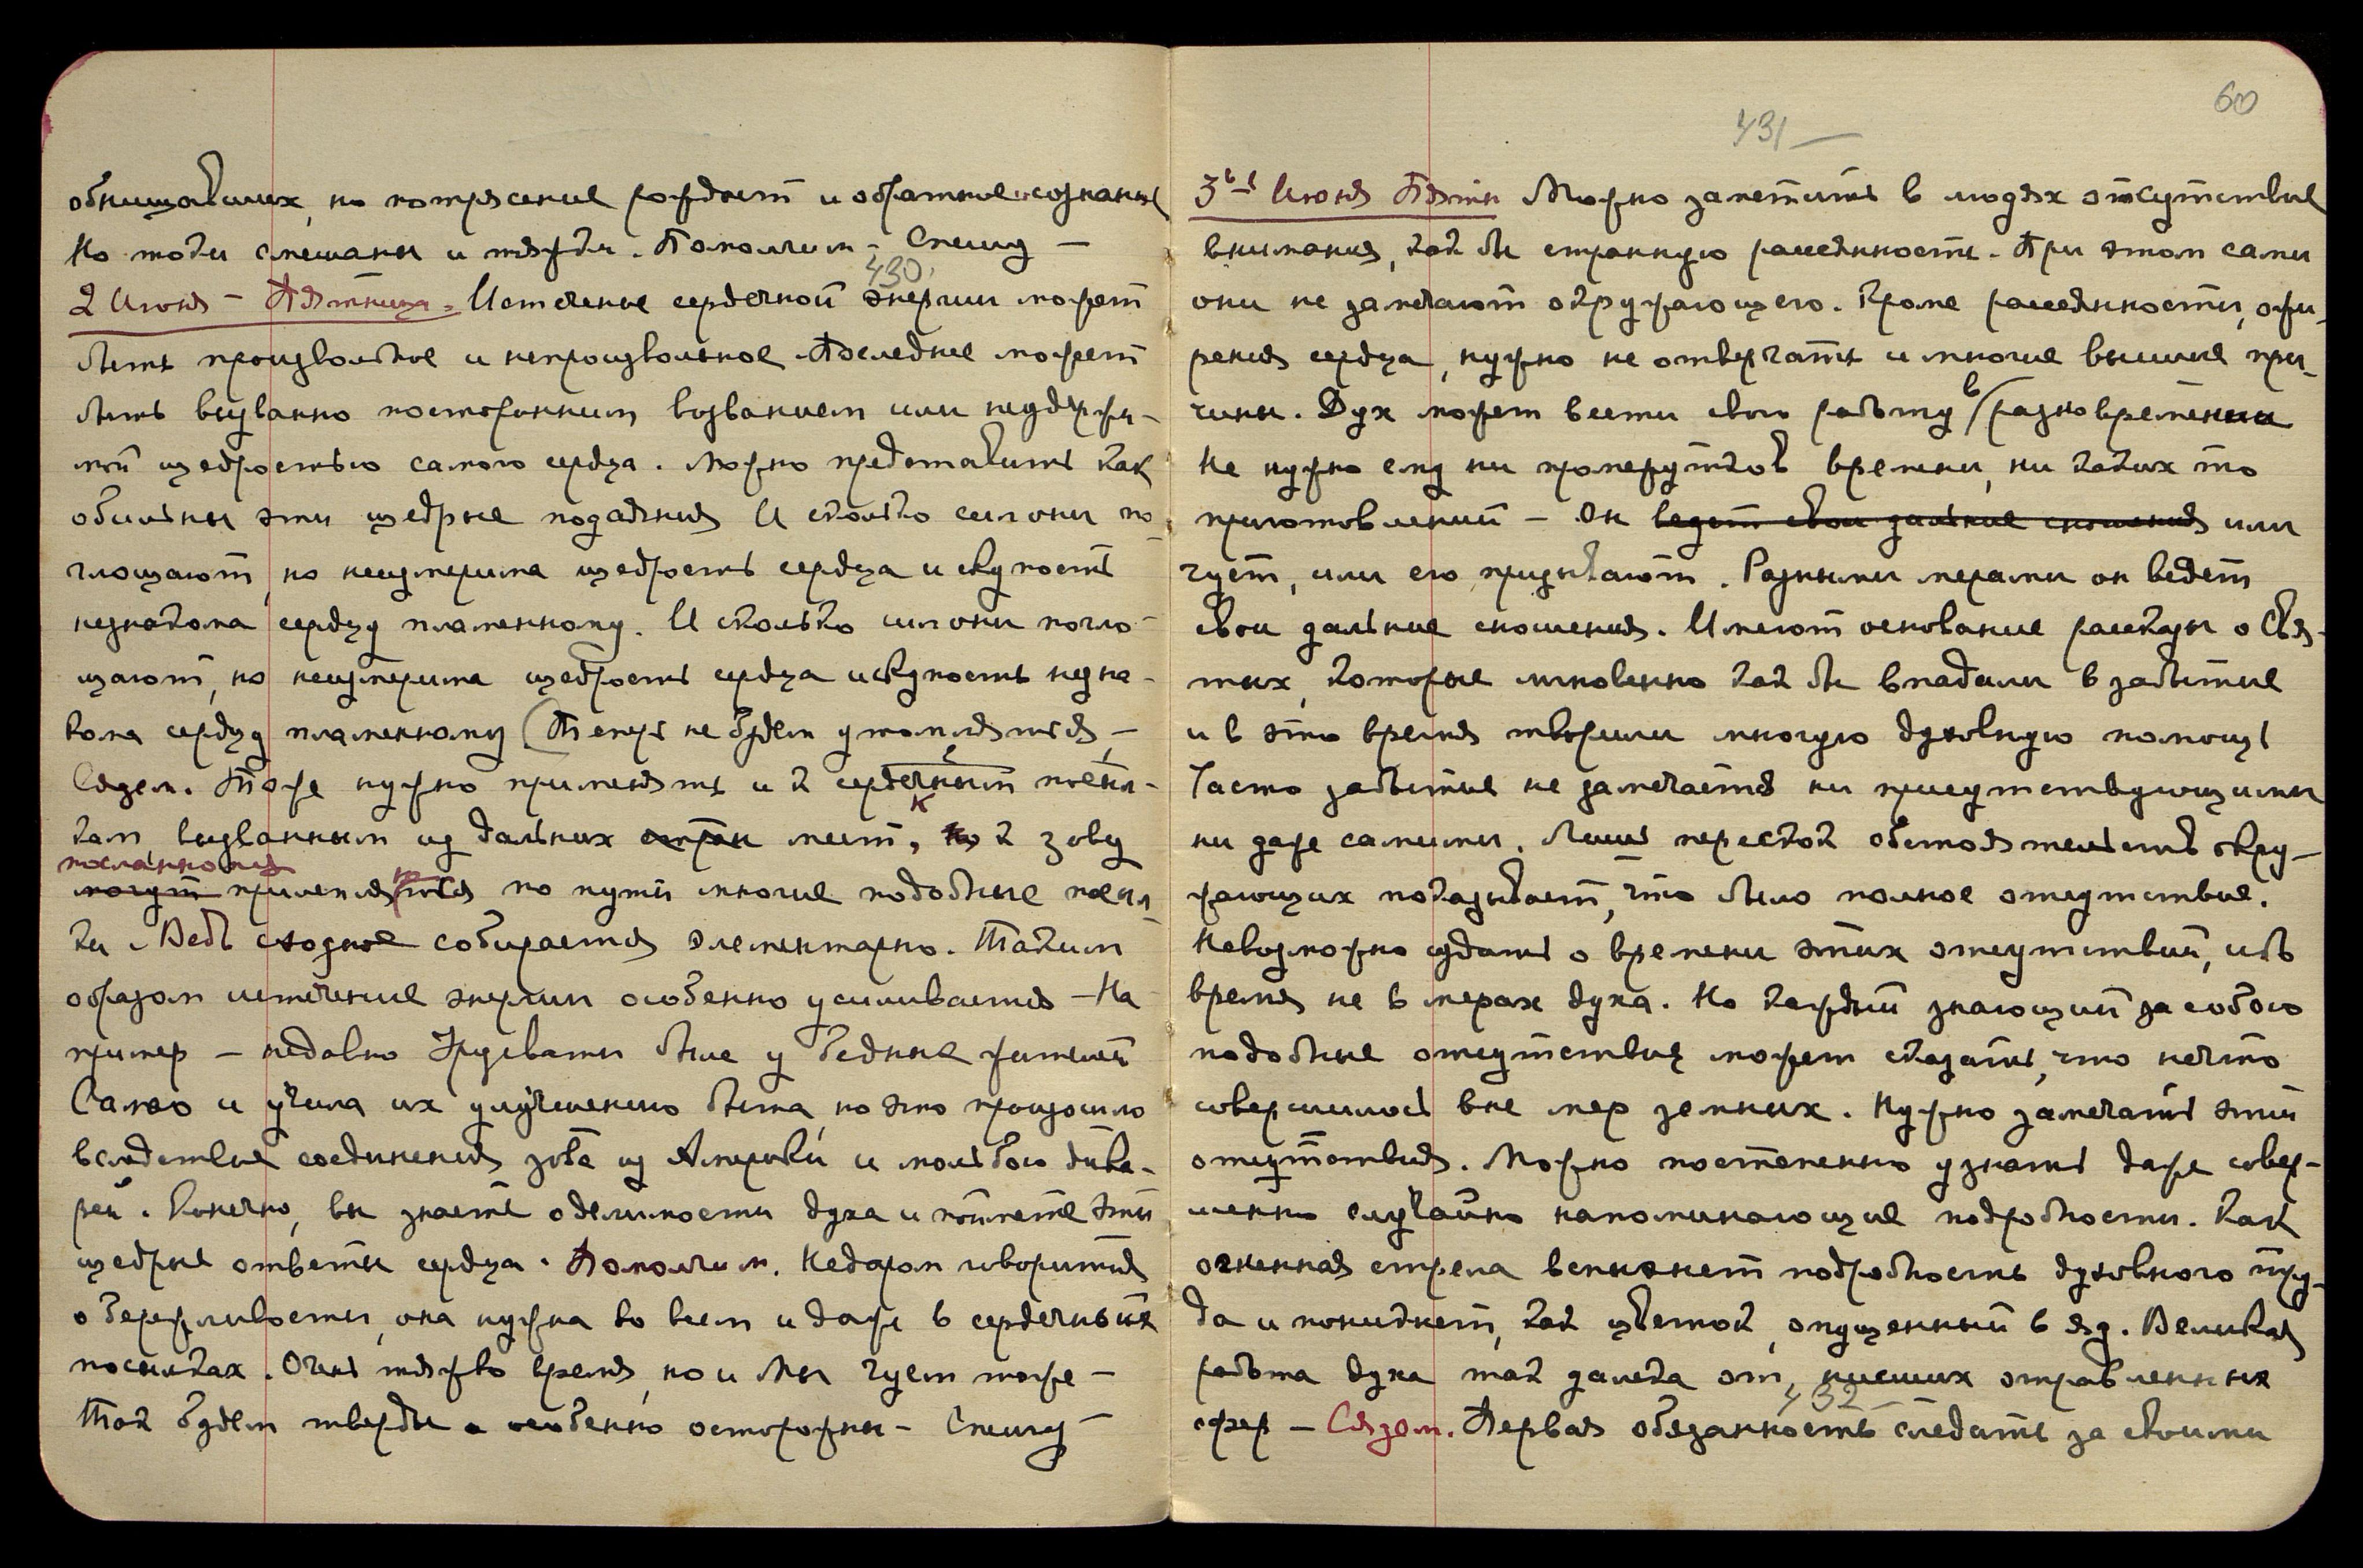 обнищавших, но потрясение рождает и обратное сознание
Но токи смешаны и тяжки. Помолчим. Спешу —
430.
2 Июня — Пятница. Истечение сердечной энергии может
быть произвольное и непроизвольное. Последнее может
быть вызванно посторонним воззванием или неудержи-
мой щедростью самого сердца. Можно представить как
обильны эти щедрые подаяния И сколько сил они по-
глощают, но неизмерима щедрость сердца и скупость
незнакома сердцу пламенному. И сколько сил они погло-
щают, но неизмерима щедрость сердца и скупость незна-
кома сердцу пламенному (Теперь не будем утомляться —
Сядем. Тоже нужно применять и к сердечным посыл-
кам, вызванным из дальних стран мест, но к зову
посланному
могут применяться по пути многие подобные посыл-
ки. Ведь сходное собирается элементарно. Таким
образом истечение энергии особенно усиливается — На-
пример — недавно Урусвати была у бедных жителей
Самоо и учила их улучшению быта, но это произошло
вследствие соединения зова из Америки и мольбою дика-
рей. Конечно, вы знаете о делимости духа и поймете эти
щедрые ответы сердца. Помолчим. Недаром говорится
о бережливости, она нужна во всем и даже в сердечных
посылках. Очень тяжко время, но и Мы чуем тоже —
Так будем тверды и особенно осторожны — Спешу —
60
431 —
3ья Июня Пятн Можно заметить в людях отсутствие
внимания, как бы странную рассеянность. При этом сами
они не замечают окружающего. Кроме рассеянности, ожи-
рения сердца, нужно не отвергать и многие высшие при-
чины. Дух может вести свою работу в разновремении
Не нужно ему ни промежутков времени, ни каких то
приготовлений — Он ведет свои дальние сношения или
чует, или его призывают. Разными мерами он ведет
свои дальние сношения. Имеют основание рассказы о Свя-
тых, которые мгновенно как бы впадали в забытие
и в это время творили многую духовную помощь
Часто забытие не замечается ни присутствующими
ни даже самими. Лишь перескок обстоятельств окру-
жающих показывает, что было полное отсутствие.
Невозможно судить о времени этих отсутствий, ибо
время не в мерах духа. Но каждый знающий за собою
подобные отсутствия может сказать, что нечто
совершилось вне мер земных. Нужно замечать эти
отсутствия. Можно постепенно узнать даже совер-
шенно случайно напоминающие подробности. Как
огненная стрела вспыхнет подробность духовного тру-
да и поникнет, как цветок, опущенный в яд. Великая
работа духа так далека от низших отравленных
сфер — Сядем. Первая обязанность следить за своими
432 —